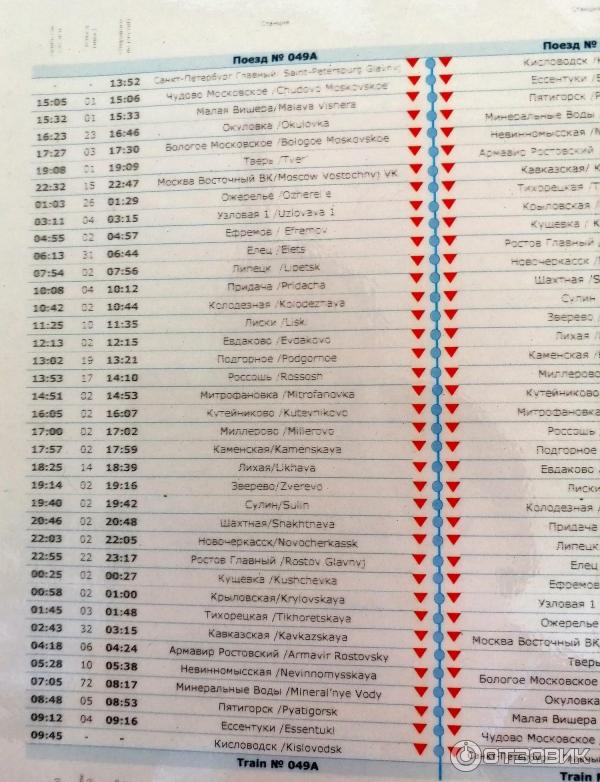 Станция
Поезд № 049А Поезд №
- - 13:52 Санкт-Петербург Главный/ Saint-Petersburg Glavnij Кисловодск /
15:05 01 15:06 Чудово Московское /Chudovo Moskovskoe Ессентуки /
15:32 01 15:33 Малая Вишера/Malaya Vishera Пятигорск /
16:23 23 16:46 Окуловка /Okulovka Минеральные Воды
17:27 03 17:30 Бологое Московское /Bologoe Moskovskoe Невинномысская /
19:08 01 19:09 Тверь /Tver' Армавир Ростовский
22:32 15 22:47 Москва Восточный ВК/Moscow Vostochnyj VK Кавказская/
01:03 26 01:29 Ожерелье /Ozherel'e Тихорецкая /
03:11 04 03:15 Узловая 1 /Uzlovaya 1 Крыловская /
04:55 02 04:57 Ефремов / Efremov Кущевка /
06:13 31 06:44 Елец /Elets Ростов Главный /
07:54 02 07:56 Липецк /Lipetsk Новочеркасск /
10:08 04 10:12 Придача /Pridacha Шахтная /S
10:42 02 10:44 Колодезная /Kolodeznaya Сулин
11:25 10 11:35 Лиски /Liski Зверево /
12:13 02 12:15 Евдаково /Evdakovo Лихая /
13:02 19 13:21 Подгорное /Podgornoe Каменская /
13:53 17 14:10 Россошь /Rossosh Миллерово
14:51 02 14:53 Митрофановка /Mitrofanovka Кутейниково /
16:05 02 16:07 Кутейниково /Kutevnikovo Митрофановка
17:00 02 17:02 Миллерово /Millerovo Россошь /
17:57 02 17:59 Каменская/Kamenskaya Подгорное
18:25 14 18:39 Лихая/Likhaya Евдаково /
19:14 02 19:16 Зверево/Zverevo Лиски
19:40 02 19:42 Сулин/Sulin Колодезная /
20:46 02 20:48 Шахтная/Shakhtnaya Придача
22:03 02 22:05 Новочеркасск/Novocherkassk Липецк
22:55 22 23:17 Ростов Главный /Rostov Glavnyj Елец
00:25 02 00:27 Кущевка /Kushchevka Ефремов
00:58 02 01:00 Крыловская /Krylovskaya Узловая 1
01:45 03 01:48 Тихорецкая /Tikhoretskaya Ожерелье
02:43 32 03:15 Кавказская /Kavkazskaya Москва Восточный ВК/
04:18 06 04:24 Армавир Ростовский /Armavir Rostovsky Тверь
05:28 10 05:38 Невинномысская /Nevinnomysskaya Бологое Московское
07:05 72 08:17 Минеральные Воды /Mineral'nye Vody Окуловка
08:48 05 08:53 Пятигорск /Pyatigorsk Малая Вишера
09:12 04 09:16 Ессентуки /Essentuki Чудово Московское
09:45 - - Кисловодск /Kislovodsk Санкт-Петербург Главный
Train № 049A Train №
ОТЗОВИК